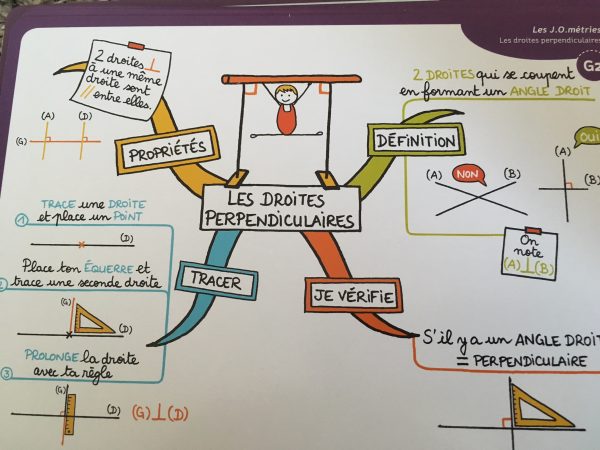 Les J.O.métries
Les droites perpendiculaires
G2
2 droites ⊥
à une même
droite sont
// entre elles.
(A) (D)
(G)
PROPRIÉTÉS
2 DROITES qui se coupent
en formant un ANGLE DROIT
DÉFINITION
OUI
(A) NON (B)
(A)
(B)
On
note
(A)⊥(B)
LES DROITES
PERPENDICULAIRES
TRACE une DROITE
1 et place un POINT
(D)
Place ton ÉQUERRE et
2 trace une seconde droite
(G)
(D)
PROLONGE la droite
3 avec ta règle
(G)
(D)
(G)⊥(D)
TRACER
JE VÉRIFIE
S'il y a un ANGLE DROIT
= PERPENDICULAIRE